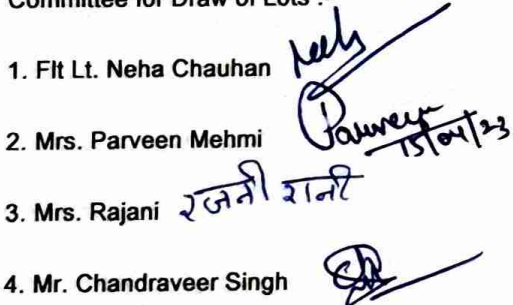 Committee for Draw of Lots :
1. Flt Lt. Neha Chauhan Neh
2. Mrs. Parveen Mehmi Parveen
15/04/23
3. Mrs. Rajani रजनी रानी
4. Mr. Chandraveer Singh